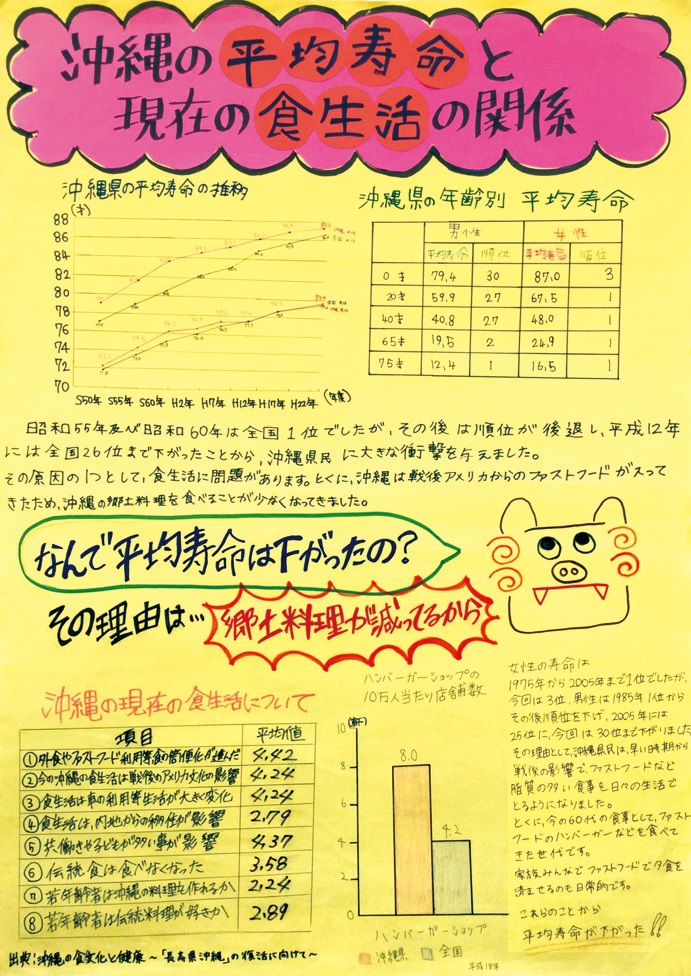 沖縄の平均寿命と
現在の食生活の関係
沖縄県の平均寿命の推移
(才)
88
86
84
82
80
78
76
74
72
70
S50年 S55年 S60年 H2年 H7年 H12年 H17年 H22年 (年度)
沖縄県の年齢別 平均寿命
男性 女性
平均寿命 順位 平均寿命 順位
0才 79.4 30 87.0 3
20才 59.9 27 67.5 1
40才 40.8 27 48.0 1
65才 19.5 2 24.9 1
75才 12.4 1 16.5 1
昭和55年及び昭和60年は全国1位でしたが、その後は順位が後退し、平成12年
には全国26位まで下がったことから、沖縄県民に大きな衝撃を与えました。
その原因の1つとして、食生活に問題があります。とくに、沖縄は戦後アメリカからのファストフードが入って
きたため、沖縄の郷土料理を食べることが少なくなってきました。
なんで平均寿命は下がったの?
その理由は…郷土料理が減ってるから
沖縄の現在の食生活について
項目 平均値
①外食やファストフード利用等食の簡便化が進んだ 4.42
②今の沖縄の食生活は戦後のアメリカ文化の影響 4.24
③食生活は車の利用等生活が大きく変化 4.24
④食生活は、内地からの移住が影響 2.79
⑤共働きや子どもが多い事が影響 4.37
⑥伝統食は食べなくなった 3.58
⑦若年齢者は沖縄の料理を作れるか 2.24
⑧若年齢者は伝統料理が好きか 2.89
出典:沖縄の食文化と健康〜「長寿県沖縄」の復活に向けて〜
ハンバーガーショップの
10万人当たり店舗数
(軒)
10
8
6
4
2
0
8.0
4.2
ハンバーガーショップ
沖縄県 全国
平成18年
女性の寿命は
1975年から2005年まで1位でしたが、
今回は3位、男性は1985年1位から
その後順位を下げ、2005年には
25位に、今回は30位まで下がりました
その理由として、沖縄県民は、早い時期から
戦後の影響で、ファストフードなど
脂質の多い食事を日々の生活で
とるようになりました。
とくに、今の60代の食事として、ファスト
フードのハンバーガーなどを食べて
きた世代です。
家族みんなでファストフードで夕食を
済ませるのも日常的です。
これらのことから
平均寿命が下がった!!